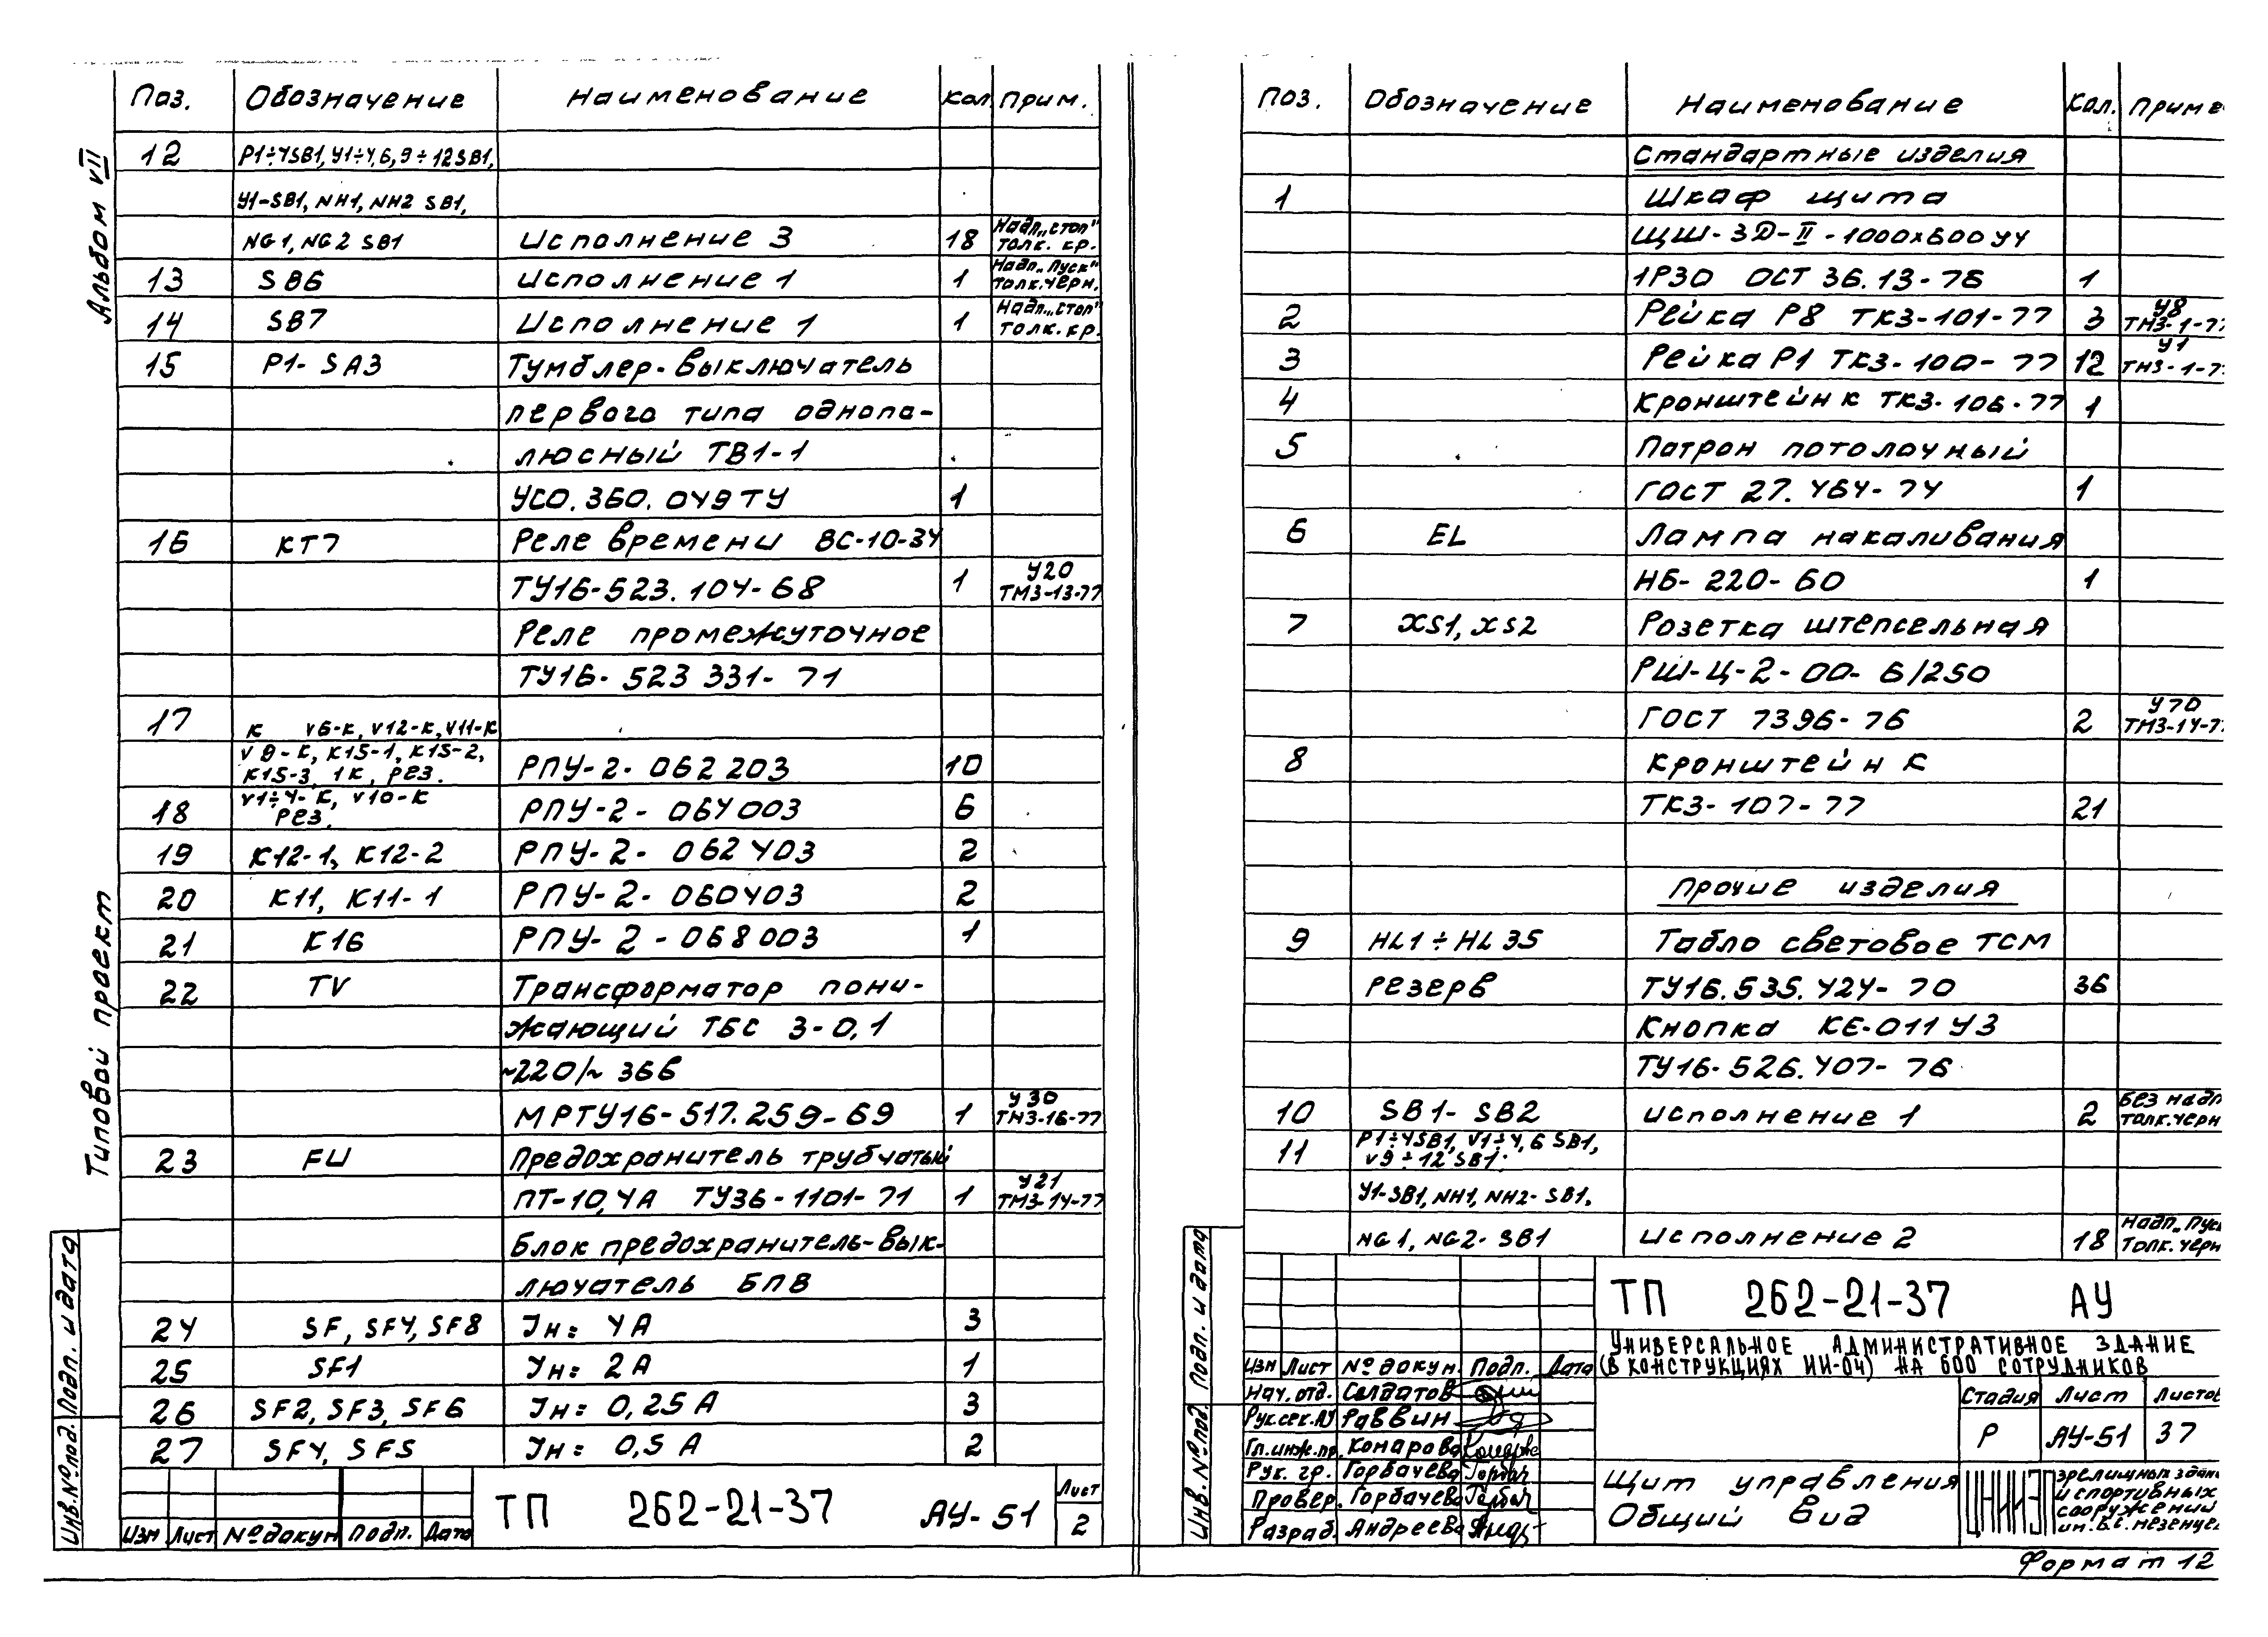 Альбом VII
Типовой проект
Инв.№подл. Подп. и дата
Поз. Обозначение Наименование Кол Прим.
12 Р1÷4SB1, У1÷4,6,9÷12SB1,
У1-SB1, NH1, NH2 SB1,
NG1, NG2 SB1 Исполнение 3 18 Надп. „стоп" толк. кр.
13 SB6 Исполнение 1 1 Надп. „Пуск" толк.черн.
14 SB7 Исполнение 1 1 Надп. „стоп" толк. кр.
15 Р1-SA3 Тумблер-выключатель
первого типа однопо-
люсный ТВ1-1
УСО.360.049ТУ 1
16 КТ7 Реле времени ВС-10-34
ТУ16-523.104-68 1 У20 ТМ3-13-77
Реле промежуточное
ТУ16-523 331-71
17 К V6-К, V12-К, V11-К
V9-К, К15-1, К15-2,
К15-3, 1К, рез. РПУ-2-062203 10
18 V1÷4-К, V10-К рез. РПУ-2-064003 6
19 К12-1, К12-2 РПУ-2-062403 2
20 К11, К11-1 РПУ-2-060403 2
21 К16 РПУ-2-068003 1
22 TV Трансформатор пони-
жающий ТБС 3-0,1
~220/~36в
МРТУ16-517.259-69 1 У30 ТМ3-16-77
23 FU Предохранитель трубчатый
ПТ-10, 4А ТУ36-1101-71 1 У21 ТМ3-14-77
Блок предохранитель-вык-
лючатель БПВ
24 SF, SF4, SF8 Iн= 4А 3
25 SF1 Iн= 2А 1
26 SF2, SF3, SF6 Iн= 0,25А 3
27 SF4, SF5 Iн= 0,5А 2
Изм Лист №докум Подп. Дата
ТП 262-21-37 АУ-51 Лист 2
Поз. Обозначение Наименование Кол. Приме
Стандартные изделия
1 Шкаф щита
ЩШ-3Д-II-1000х600У4
1Р30 ОСТ 36.13-76 1
2 Рейка Р8 ТК3-101-77 3 У8 ТМ3-1-77
3 Рейка Р1 ТК3-100-77 12 У1 ТМ3-1-77
4 Кронштейн К ТК3-106-77 1
5 Патрон потолочный
ГОСТ 27.464-74 1
6 EL Лампа накаливания
НБ-220-60 1
7 XS1, XS2 Розетка штепсельная
РШ-Ц-2-00-6/250
ГОСТ 7396-76 2 У70 ТМ3-14-77
8 Кронштейн К
ТК3-107-77 21
Прочие изделия
9 HL1÷HL35 Табло световое ТСМ
резерв ТУ16.535.424-70 36
Кнопка КЕ-011У3
ТУ16-526.407-76
10 SB1-SB2 исполнение 1 2 Без надп толк.черн
11 Р1÷4SB1, V1÷4,6 SB1,
V9÷12 SB1.
У1-SB1, NH1, NH2-SB1,
NG1, NG2-SB1 Исполнение 2 18 Надп. „Пуск толк. черн
Инв.№подл. Подп. и дата
ТП 262-21-37 АУ
Универсальное административное здание
(в конструкциях ИИ-04) на 600 сотрудников
Изм Лист №докум. Подп. Дата
Нач.отд. Солдатов
Рук.сек.АУ Раввин
Гл.инж.пр. Комарова
Рук. гр. Горбачева
Провер. Горбачева
Разраб. Андреева
Стадия Лист Листов
Р АУ-51 37
Щит управления
Общий вид
ЦНИИЭП
зрелищных здан
и спортивных
сооружений
им. Б.С. Мезенце
Формат 12